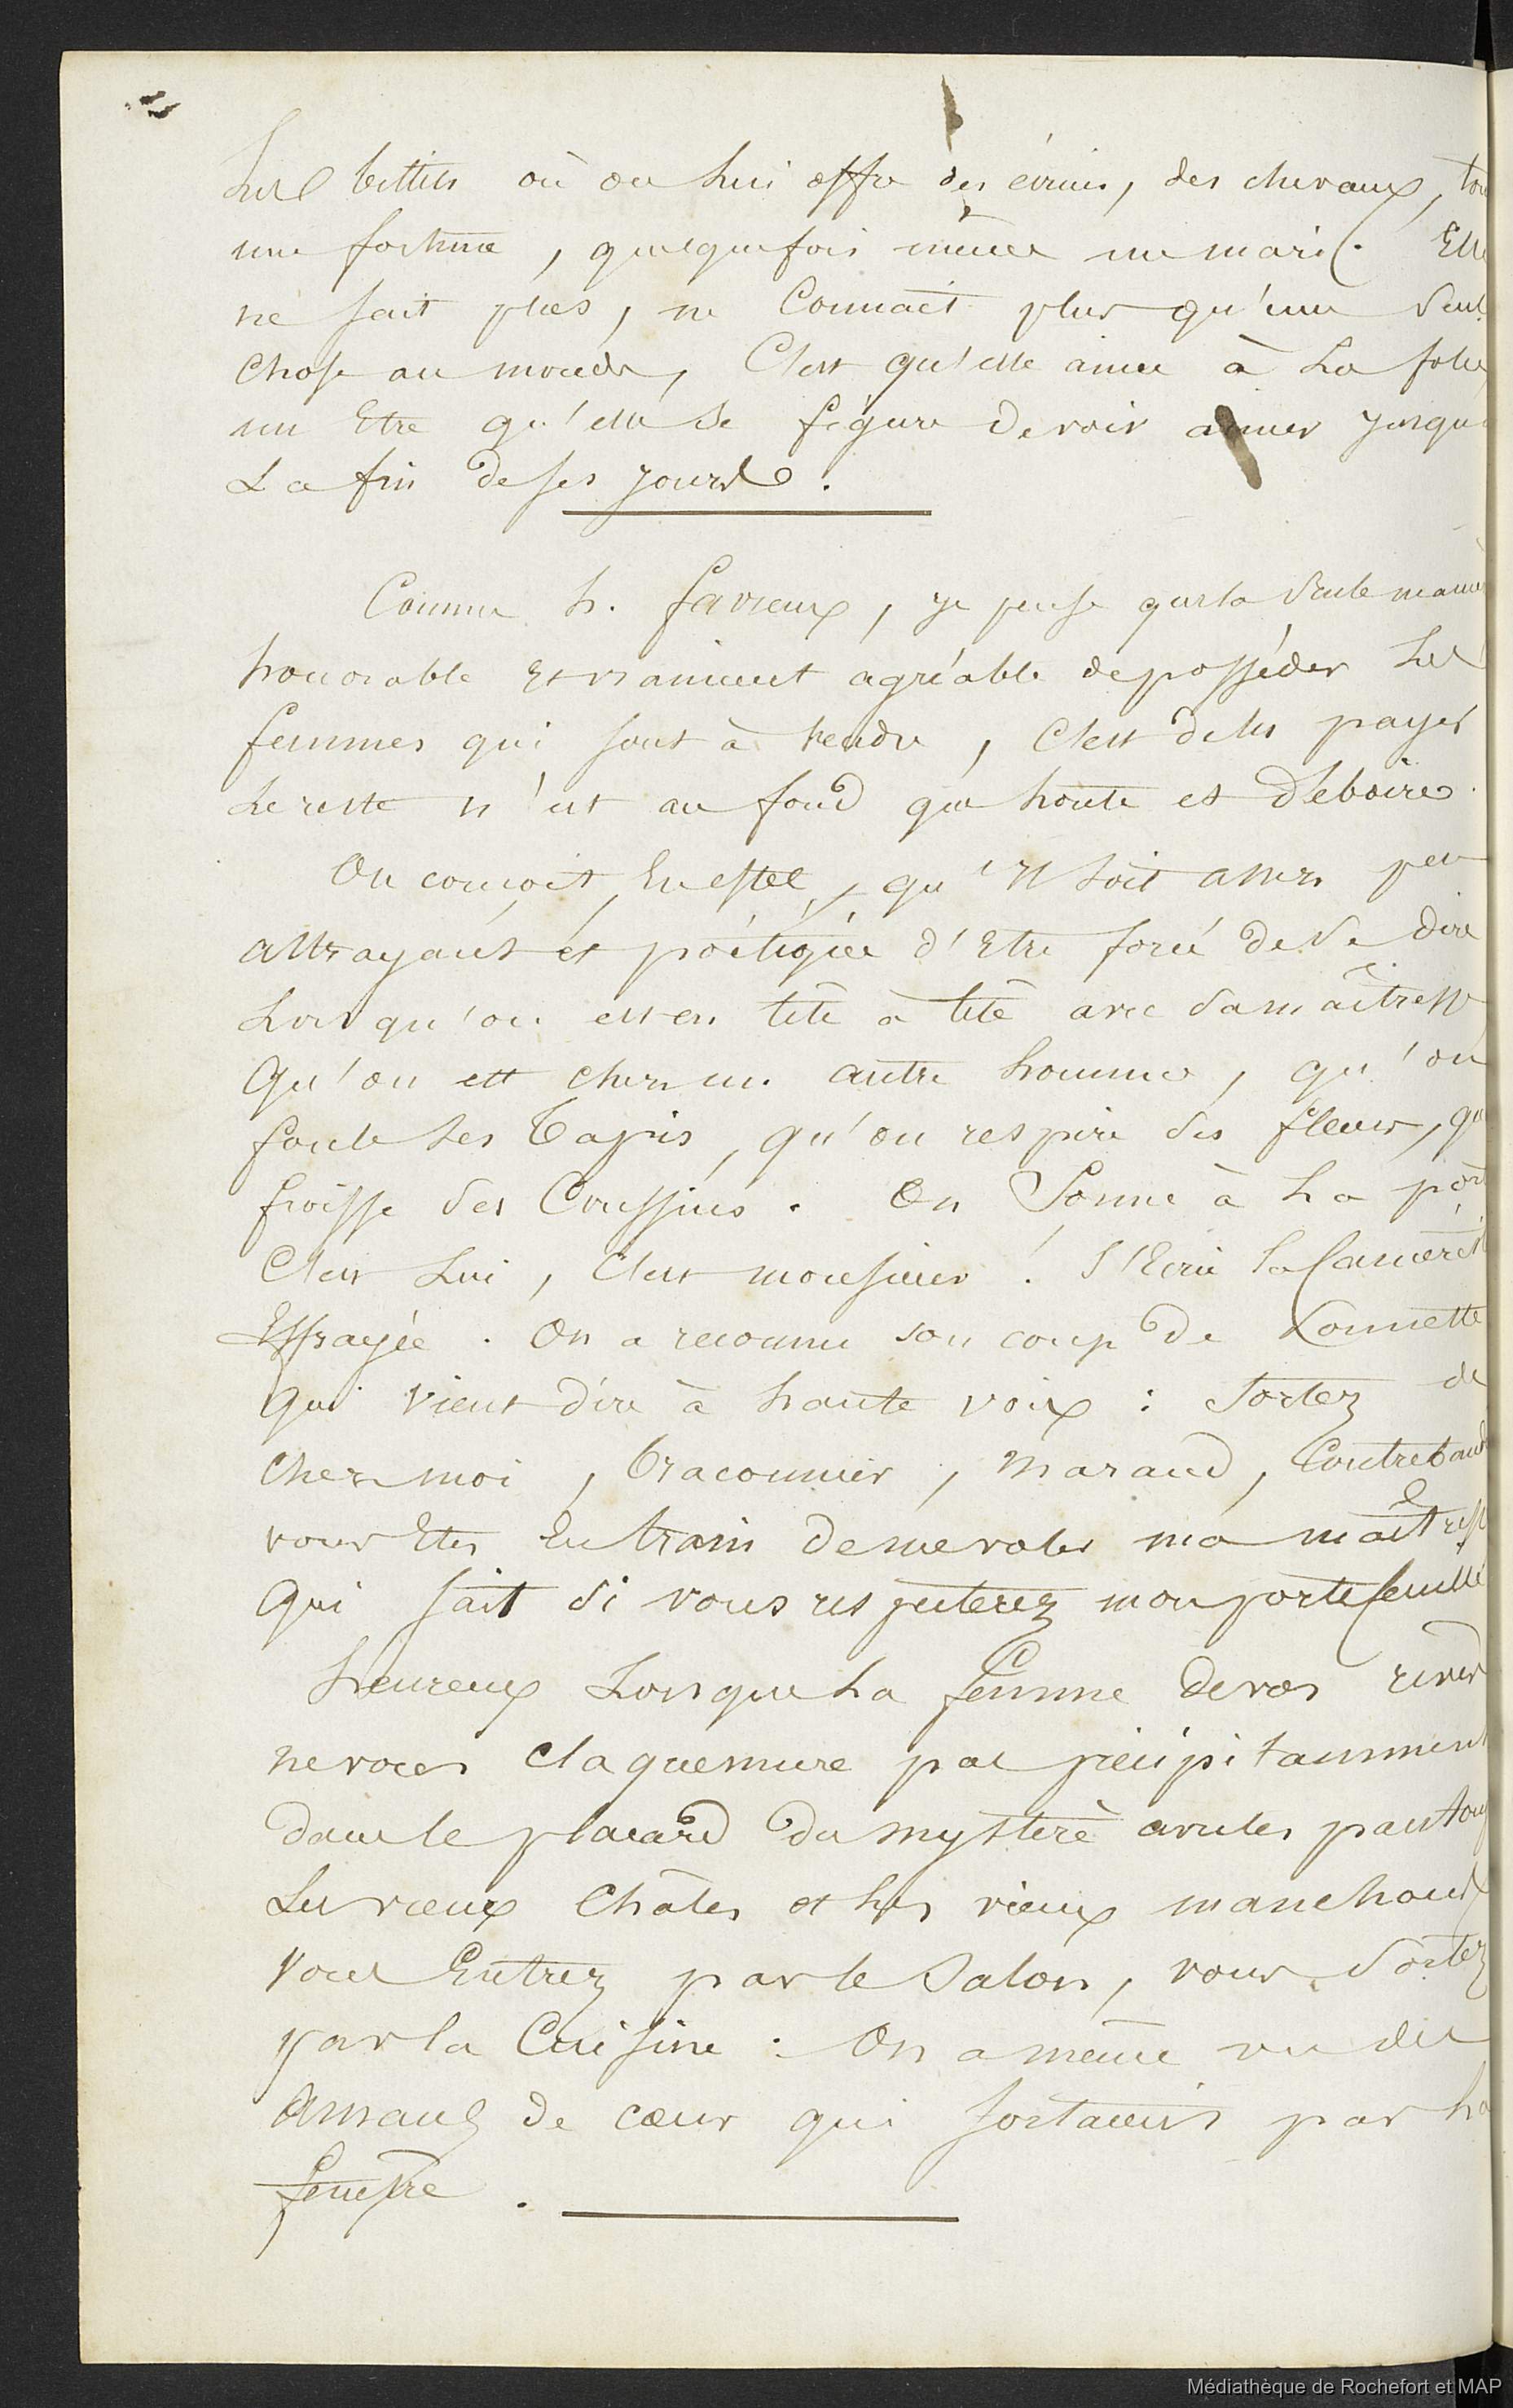 les billets où on lui offre des écrins, des chevaux, tou
une fortune, quelquefois même un mari. Elle
ne sait plus, ne connait plus qu'une seul
chose au monde, c'est qu'elle aime à la folie
un Etre qu'elle se figure devoir aimer jusqu'à
La fin de ses jours.
Comme h. favreux, je pense que la seule maniè
honorable et vraiment agréable de posséder les
femmes qui sont à vendre, c'est de les payer
Le reste n'est au fond que honte et déboire.
On conçoit, en effet, qu'il soit assez peu
attrayant et poétique d'Etre forcé de se dire
Lorsqu'on est en tête à tête avec sa maîtresse
Qu'on est chez un autre homme, qu'on
foule ses tapis, qu'on respire ses fleurs, qu
froisse ses coussins. On sonne à la port
C'est lui, c'est monsieur ! s'écrie la camérist
Effrayée. On a reconnu son coup de sonnette
qui vient dire à haute voix : sortez de
chez moi, braconnier, maraud, contreband
vous êtes en train de me voler ma maîtress
Qui sait si vous respecterez mon portefeuille
heureux Lorsque la femme de vos rêves
ne vous claquemure pas précipitamment
dans le placard du mystère avec les pantou
Les vieux châles et les vieux manchons
Vous Entrez par le salon, vous sortez
par la cuisine : On a même vu des
Amants de cœur qui sortaient par la
fenêtre.
Médiathèque de Rochefort et MAP